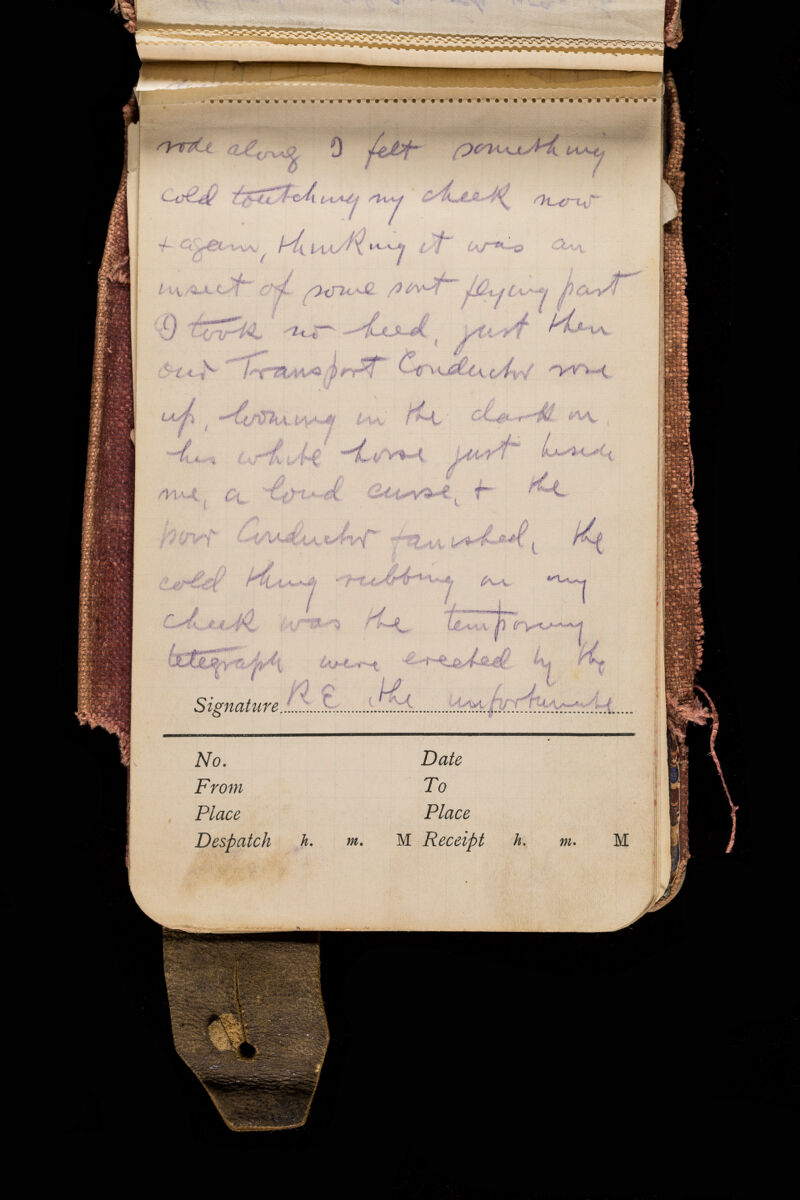 rode along I felt something
cold toutching my cheek now
+ again, thinking it was an
insect of some sort flying past
I took no heed, just then
our Transport Conductor rose
up, looming in the dark on
his white horse just beside
me, a loud curse, + the
poor Conductor vanished, the
cold thing rubbing on my
cheek was the temporary
telegraph were erected by the
Signature R E the unfortunate
No. Date
From To
Place Place
Despatch h. m. M Receipt h. m. M